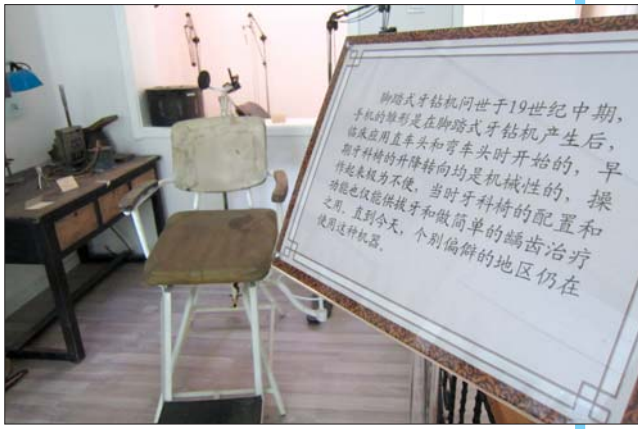 脚踏式牙钻机问世于19世纪中期，
手机的雏形是在脚踏式牙钻机产生后，
临床应用直车头和弯车头时开始的，早
期牙科椅的升降转向均是机械性的，操
作起来极为不便，当时牙科椅的配置和
功能也仅能供拔牙和做简单的龋齿治疗
之用。直到今天，个别偏僻的地区仍在
使用这种机器。